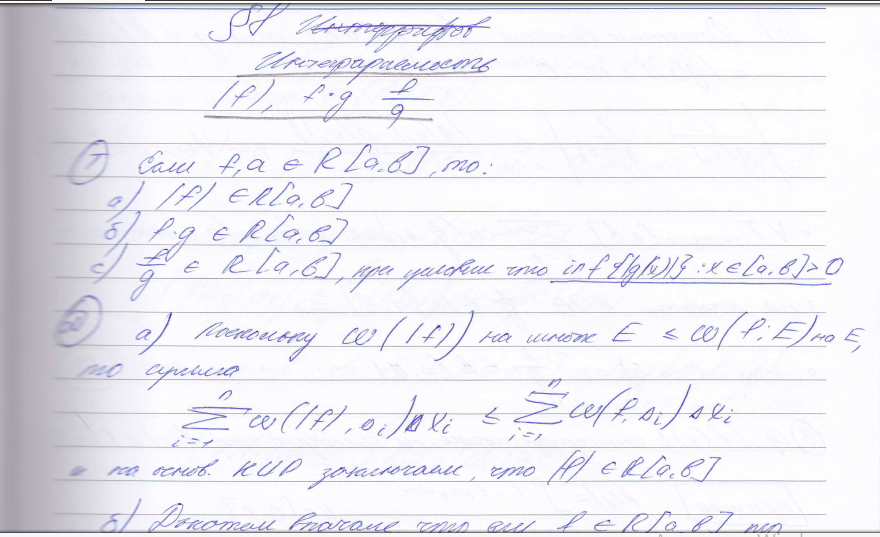 §1
Интегрируемость
|f|, f·g f/g
① Если f, g ∈ R[a,b], то:
а) |f| ∈ R[a,b]
б) f·g ∈ R[a,b]
с) f/g ∈ R[a,b], при условии что inf{|g(x)|} : x∈[a,b]>0
а) поскольку ω(|f|) на множ E ≤ ω(f;E) на E,
то сумма
∑ⁿᵢ₌₁ ω(|f|, Δi)Δxi ≤ ∑ⁿᵢ₌₁ ω(f, Δi)Δxi
и на основ. КИР заключаем, что |f| ∈ R[a,b]
б) вначале что если f ∈ R[a,b] то